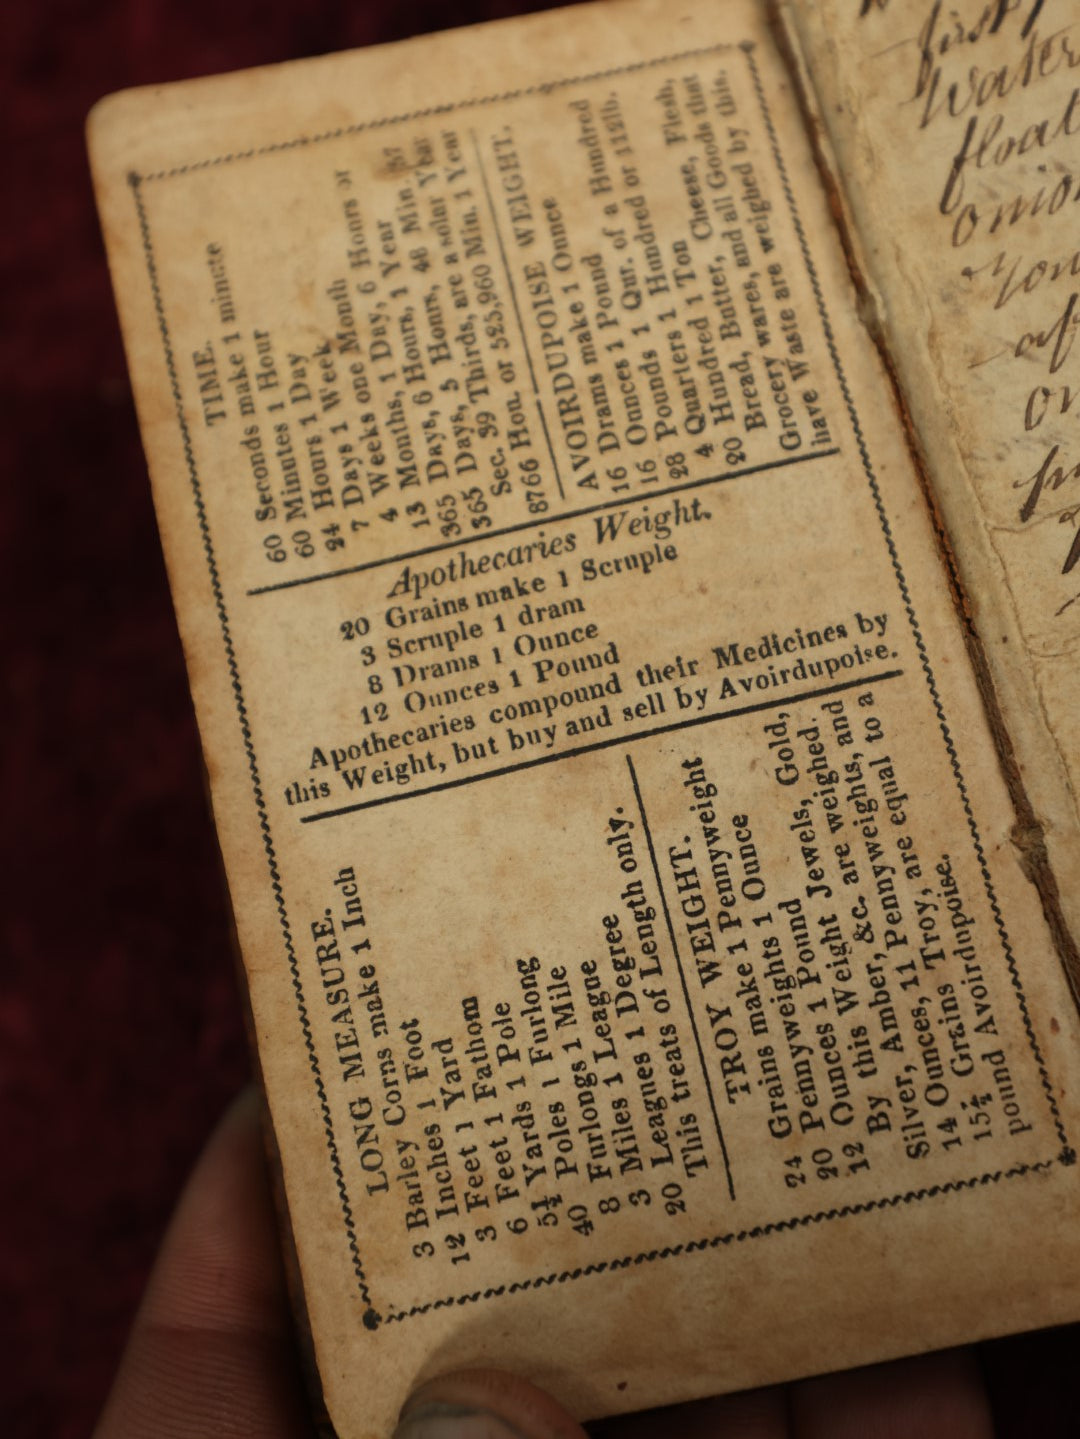 TIME.
60 Seconds make 1 minute
60 Minutes 1 Hour
24 Hours 1 Day
7 Days 1 Week
4 Weeks one Month
13 Months, 1 Day, 6 Hours or
365 Days, 6 Hours, 1 Year
365 Days, 5 Hours, 48 Min. 57
Sec. 39 Thirds, are a solar Year
8766 Hou. or 525,960 Min. 1 Year
AVOIRDUPOISE WEIGHT.
16 Drams make 1 Ounce
16 Ounces 1 Pound
28 Pounds 1 Qur. of a Hundred
4 Quarters 1 Hundred or 112lb.
20 Hundred 1 Ton
Bread, Butter, Cheese, Flesh,
Grocery wares, and all Goods that
have Waste are weighed by this.
Apothecaries Weight.
20 Grains make 1 Scruple
3 Scruple 1 dram
8 Drams 1 Ounce
12 Ounces 1 Pound
Apothecaries compound their Medicines by
this Weight, but buy and sell by Avoirdupoise.
LONG MEASURE.
3 Barley Corns make 1 Inch
12 Inches 1 Foot
3 Feet 1 Yard
6 Feet 1 Fathom
5½ Yards 1 Pole
40 Poles 1 Furlong
8 Furlongs 1 Mile
3 Miles 1 League
20 Leagues 1 Degree
This treats of Length only.
TROY WEIGHT.
24 Grains make 1 Pennyweight
20 Pennyweights 1 Ounce
12 Ounces 1 Pound
By this Weight Jewels, Gold,
Silver, Amber, &c. are weighed.
14 Ounces, 11 Pennyweights, and
15½ Grains Troy, are equal to a
pound Avoirdupoise.
first
Water
float